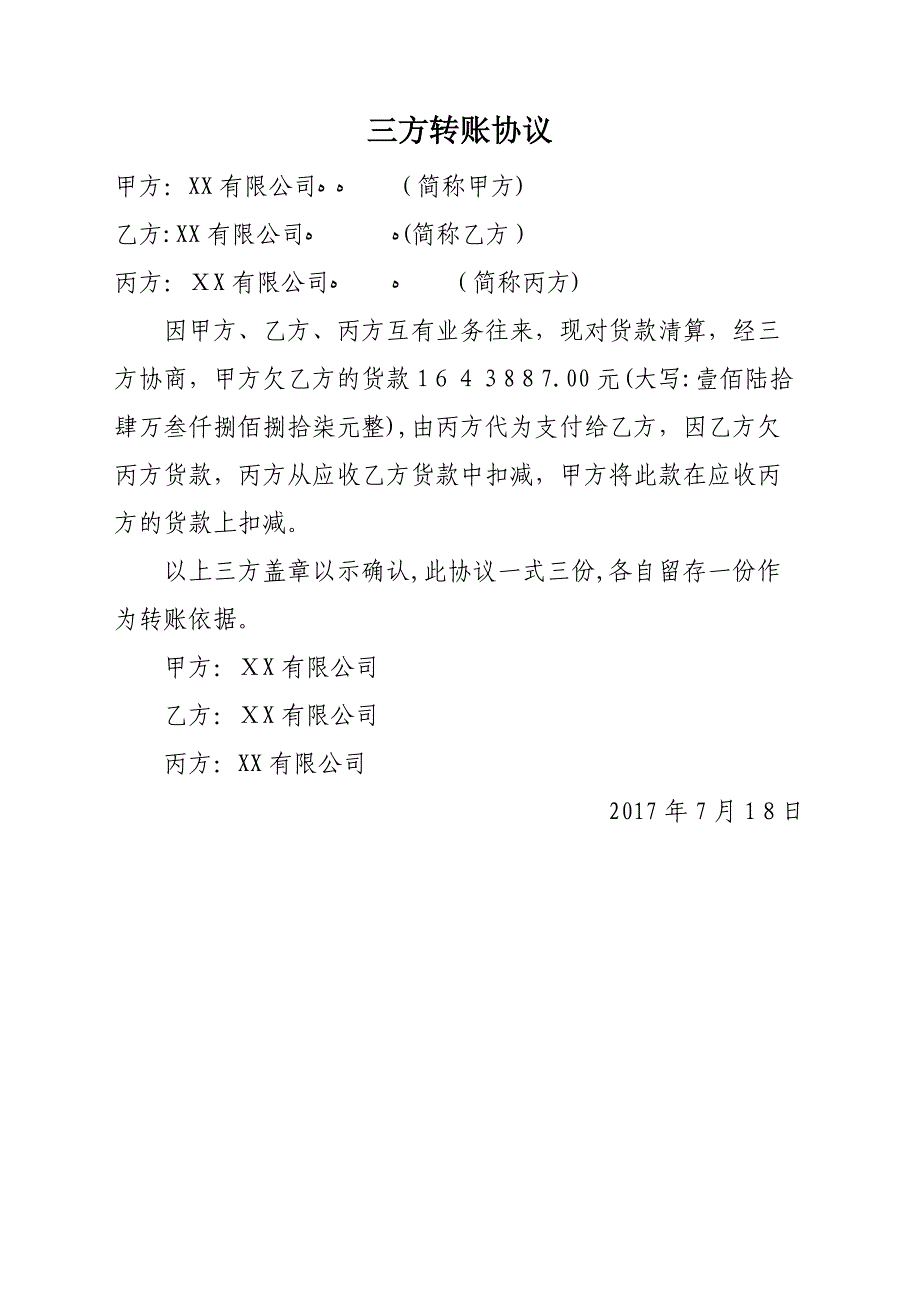 三方转账协议
甲方：XX有限公司ﻩ ﻩ （简称甲方)
乙方:XX有限公司ﻩ ﻩ(简称乙方）
丙方：ＸX有限公司ﻩ ﻩ （简称丙方)
因甲方、乙方、丙方互有业务往来，现对货款清算，经三
方协商，甲方欠乙方的货款1６４３887.00元(大写:壹佰陆拾
肆万叁仟捌佰捌拾柒元整),由丙方代为支付给乙方，因乙方欠
丙方货款，丙方从应收乙方货款中扣减，甲方将此款在应收丙
方的货款上扣减。
以上三方盖章以示确认,此协议一式三份,各自留存一份作
为转账依据。
甲方：ＸX有限公司
乙方：ＸX有限公司
丙方：XX有限公司
2017年7月1８日